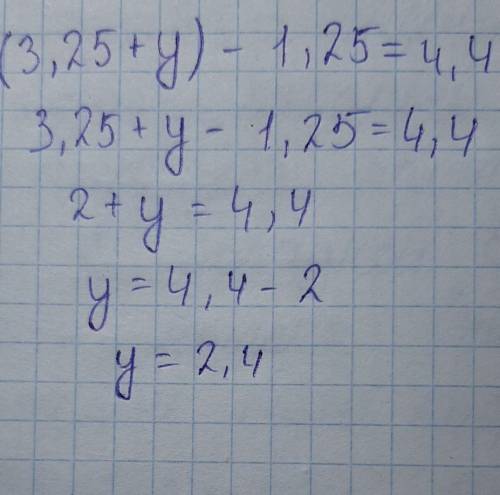 (3,25 + y) - 1,25 = 4,4
3,25 + y - 1,25 = 4,4
2 + y = 4,4
y = 4,4 - 2
y = 2,4